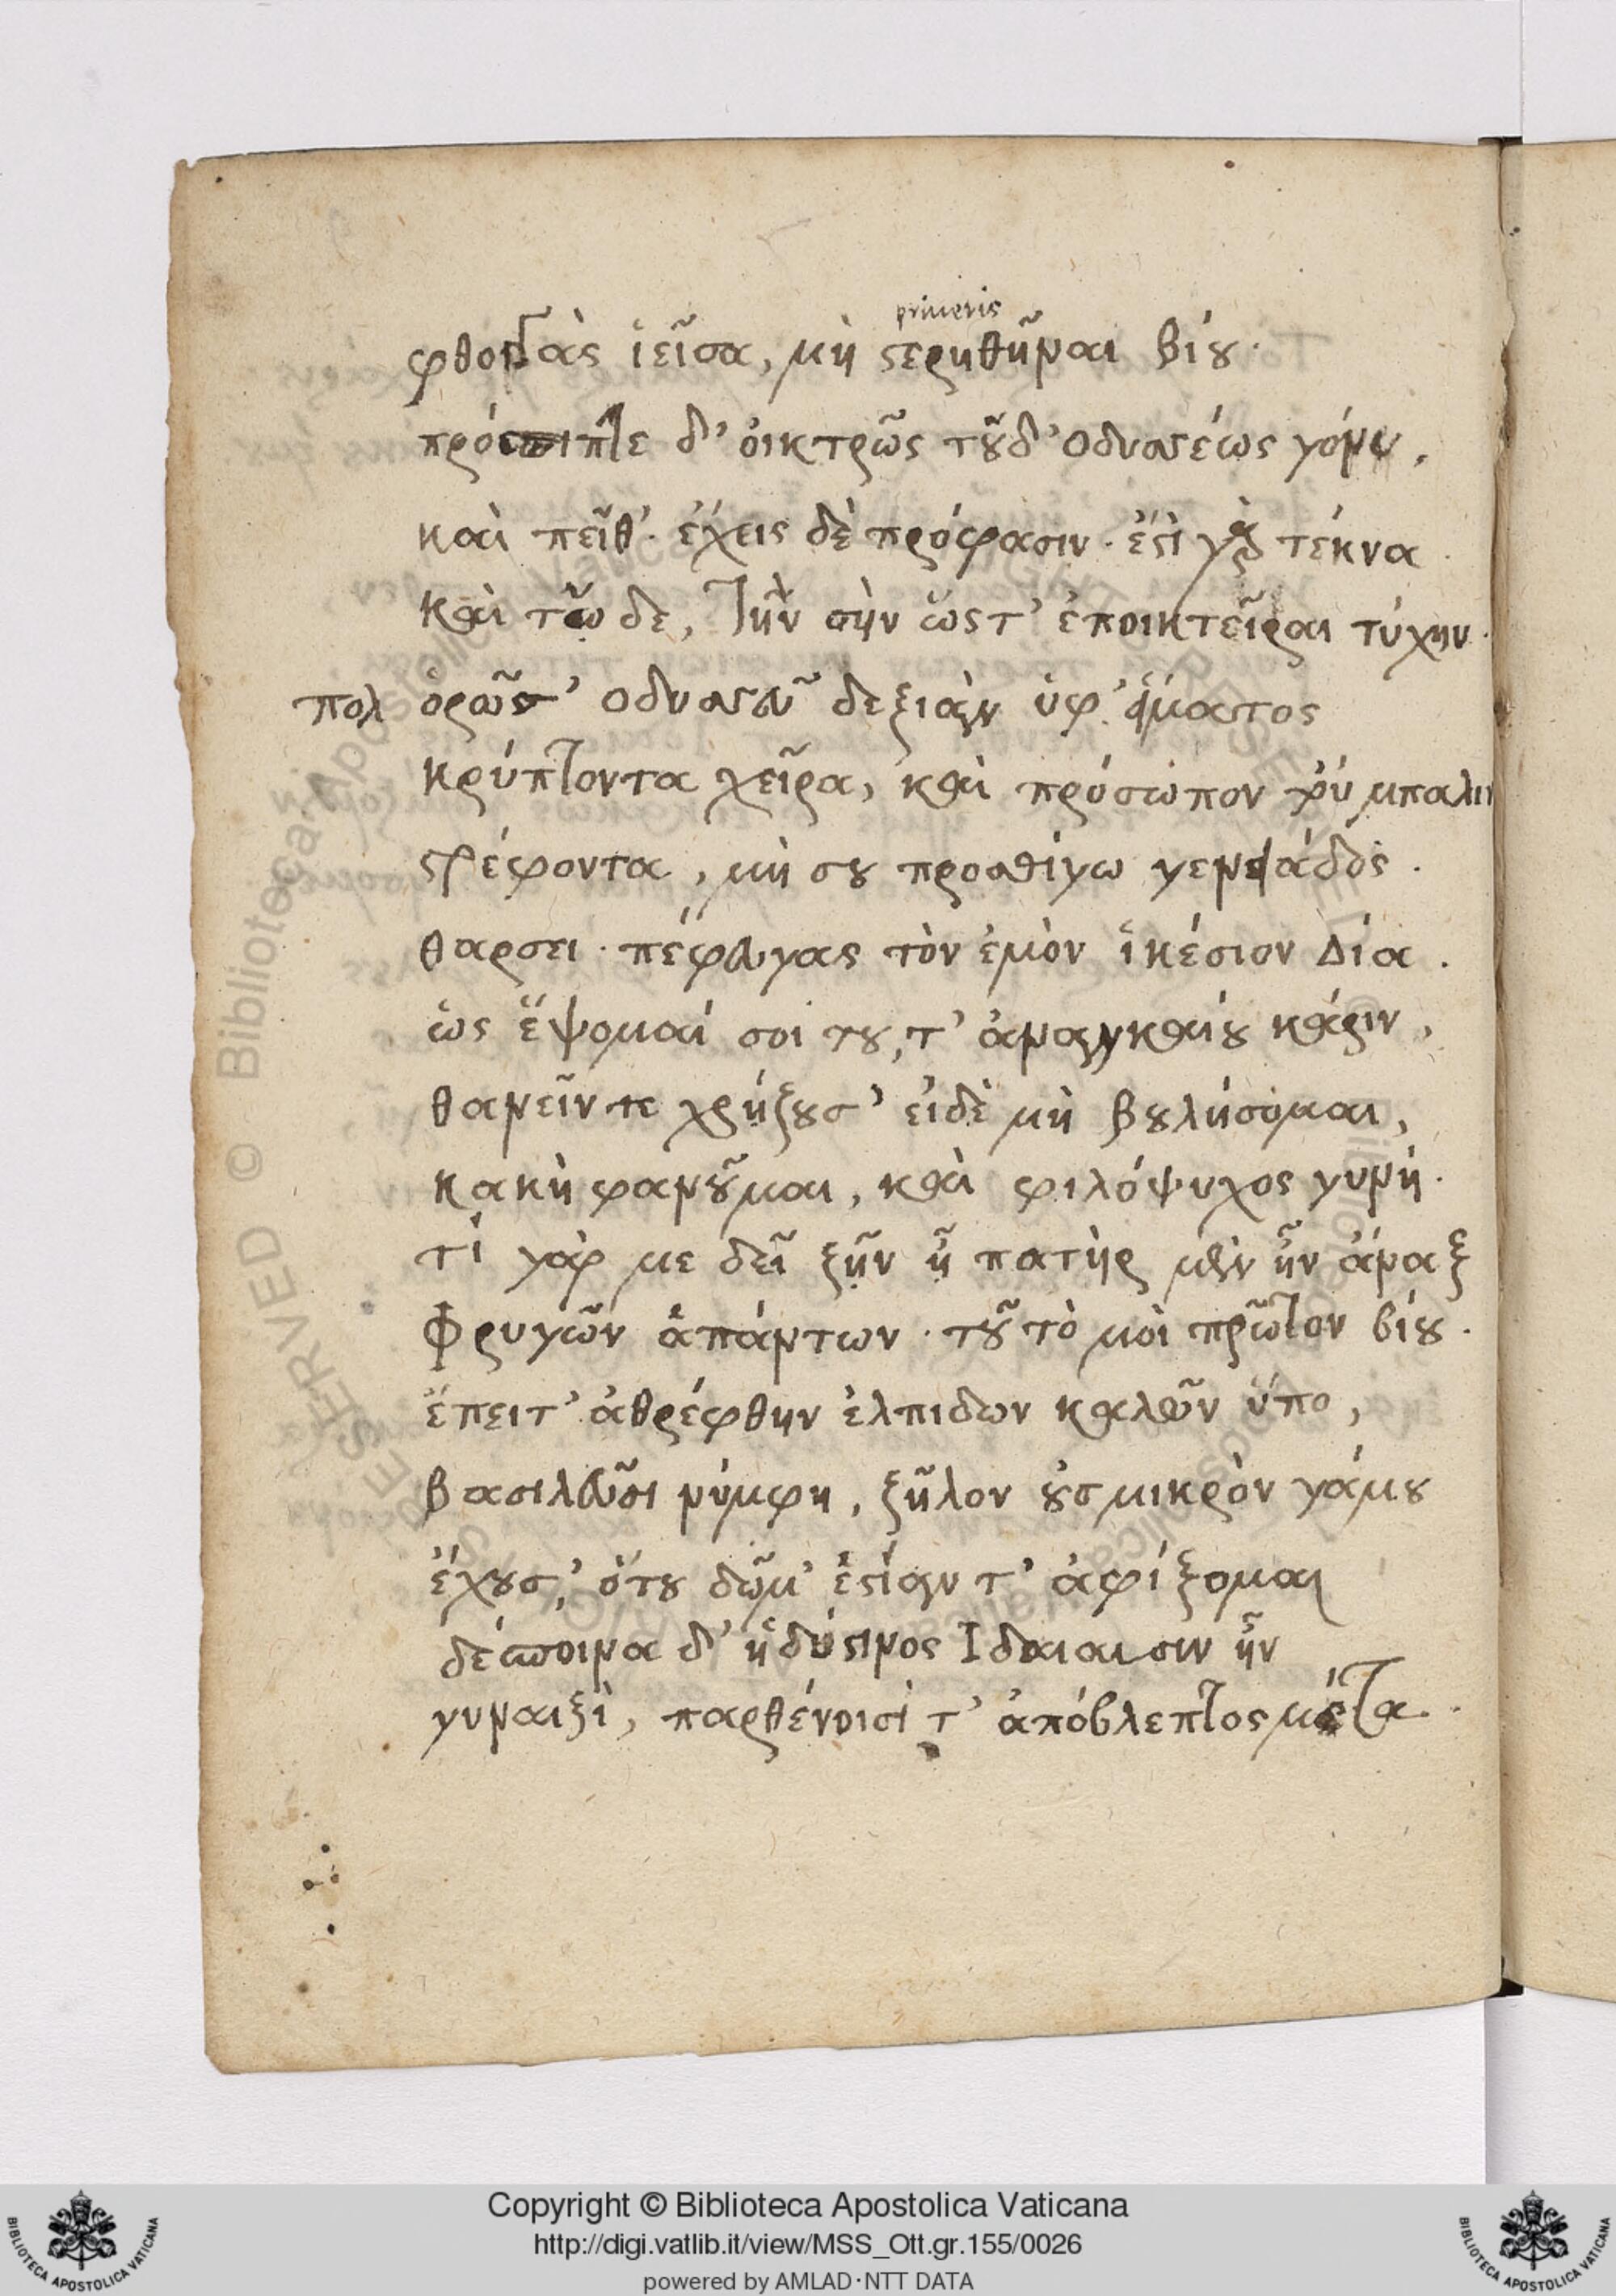 priueris
φθογγὰς ἱεῖσα, μὴ στερηθῆναι βίου.
πρόσπιπτε δ' οἰκτρῶς τοῦδ' Οδυσσέως γόνυ,
καὶ πεῖθ'. ἔχεις δὲ πρόφασιν. ἔστι γὰρ τέκνα
καὶ τῶ δε, τὴν σὴν ὥστ' ἐποικτεῖραι τύχην.
πολ ὁρῶ σ' Οδυσσεῦ δεξιὰν ὑφ' εἵματος
κρύπτοντα χεῖρα, καὶ πρόσωπον ἔμπαλιν
στρέφοντα, μὴ σου προσθίγω γενειάδος.
θαρσει. πέφευγας τὸν ἐμὸν ἱκέσιον Δία.
ὡς ἕψομαί σοι του, τ' ἀναγκαίου χάριν,
θανεῖν τε χρήζουσ' εἰδὲ μὴ βουλήσομαι,
κακὴ φανοῦμαι, καὶ φιλόψυχος γυνή.
τί γάρ με δεῖ ζῆν ᾗ πατὴρ μὲν ἦν ἄναξ
Φρυγῶν ἁπάντων. τοῦτό μοὶ πρῶτον βίου.
ἔπειτ' ἀθρέφθην ἐλπιδων καλῶν ὕπο,
βασιλεῦσι νύμφη, ζῆλον ουσμικρὸν γάμου
ἔχουσ', ὅτου δῶμ' ἑστίαν τ' ἀφίξομαι
δέσποινα δ' ἡ δύστινος Ιδαιαισιν ἦν
γυναιξὶ, παρθένοισί τ' ἀπόβλεπτος μέτα.
Copyright © Biblioteca Apostolica Vaticana
http://digi.vatlib.it/view/MSS_Ott.gr.155/0026
powered by AMLAD·NTT DATA
BIBLIOTECA APOSTOLICA VATICANA
BIBLIOTECA APOSTOLICA VATICANA